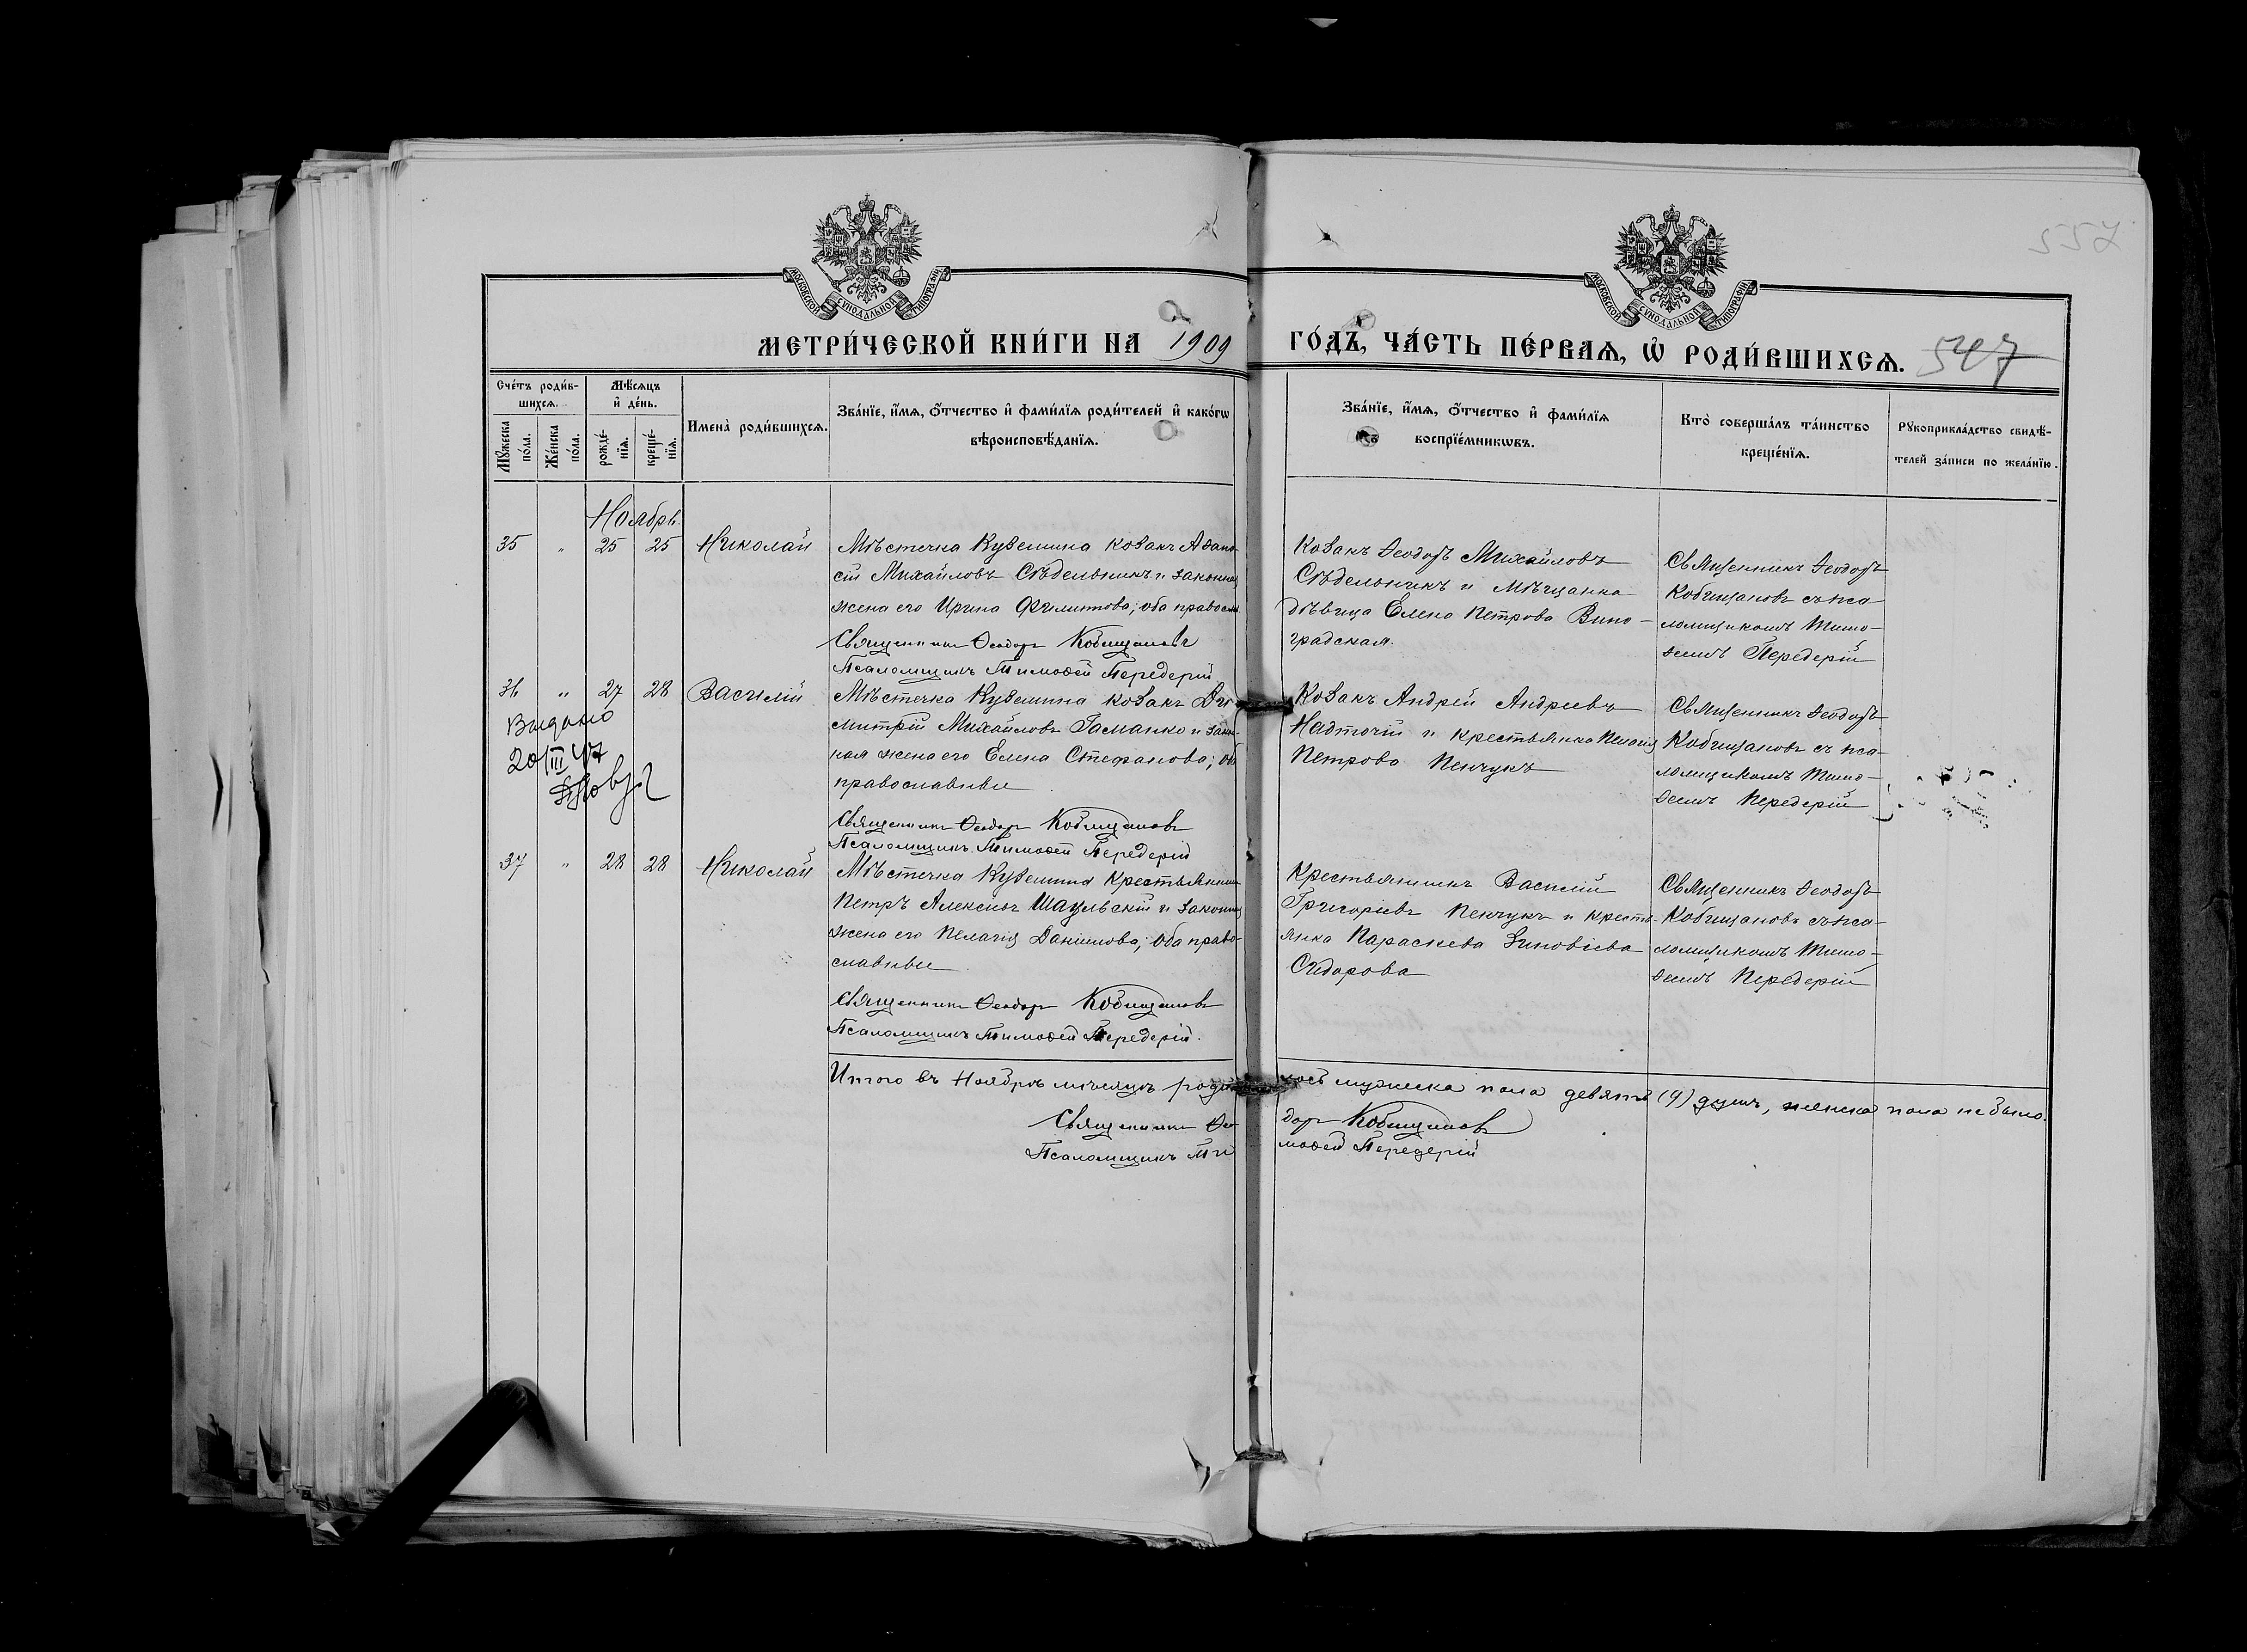 557
МОСКОВСКОЙ СУНОДАЛЬНОЙ ТИПОГРАФІИ
МОСКОВСКОЙ СУНОДАЛЬНОЙ ТИПОГРАФІИ
МЕТРИ́ЧЕСКОЙ КНИ́ГИ НА 1909 ГО́ДЪ, ЧА́СТЬ ПЕ́РВАѦ, Ѡ҆ РОДИ́ВШИХСѦ. 547
Сче́тъ роди́в-
шихсѧ.
Мѣ́сѧцъ
и҆ де́нь.
Мꙋ́жеска по́ла.
Же́нска по́ла.
рожде́-нїѧ.
креще́-нїѧ.
Имена̀ роди́вшихсѧ.
Зва́нїе, и҆́мѧ, ѻ҆́тчество и҆ фами́лїѧ роди́телей и҆ како́гѡ
вѣроисповѣ́данїѧ.
Зва́нїе, и҆́мѧ, ѻ҆́тчество и҆ фами́лїѧ
воспрїе́мникѡвъ.
Кто̀ соверша́лъ та́инство
креще́нїѧ.
Рꙋкоприкла́дство свидѣ́-
телей за́писи по жела́нїю.
Ноябрь
35 " 25 25 Николай
Мѣстечка Куземина козакъ Аѳана-
сій Михайловъ Сѣдельникъ и законная
жена его Ирина Филиппова; оба правосл.
Священникъ Ѳеодоръ Кобищановъ
Псаломщикъ Тимоѳей Передерій
Козакъ Ѳеодоръ Михайловъ
Сѣдельникъ и мѣщанка
дѣвица Елена Петрова Вино-
градская.
Священникъ Ѳеодоръ
Кобищановъ съ пса-
ломщикомъ Тимо-
ѳеемъ Передерій
36 " 27 28 Василій
Видано
20/III 47
Мѣстечка Куземина козакъ Ди-
митрій Михайловъ Гаманко и закон-
ная жена его Елена Стефанова; оба
православные
Священникъ Ѳеодоръ Кобищановъ
Псаломщикъ Тимоѳей Передерій
Козакъ Андрей Андреевъ
Надточій и крестьянка Пелагія
Петрова Пенчукъ
Священникъ Ѳеодоръ
Кобищановъ съ пса-
ломщикомъ Тимо-
ѳеемъ Передерій
37 " 28 28 Николай
Мѣстечка Куземина крестьянинъ
Петръ Алексѣевъ и законная
жена его Пелагія Даніилова; оба право-
славные
Священникъ Ѳеодоръ Кобищановъ
Псаломщикъ Тимоѳей Передерій.
Крестьянинъ Василій
Григорьевъ Пенчукъ и кресть-
янка Параскева Зиновіева
Сидорова
Священникъ Ѳеодоръ
Кобищановъ съ пса-
ломщикомъ Тимо-
ѳеемъ Передерій
Итого въ Ноябрѣ мѣсяцѣ родилось мужеска пола девять (9) душъ, женска пола не было.
Священникъ Ѳеодоръ Кобищановъ
Псаломщикъ Тимоѳей Передерій